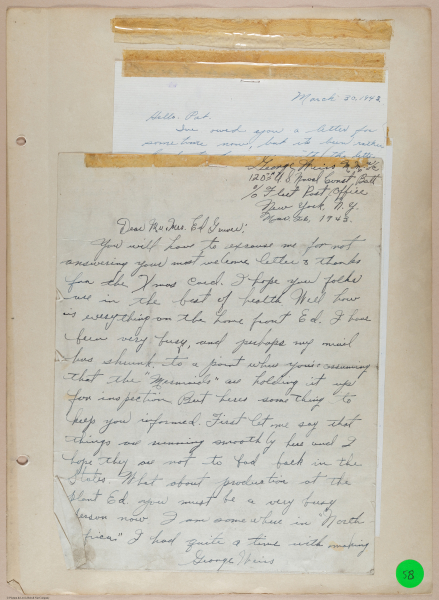 March 30, 1943
Hello Pat.
I've owed you a letter for
some time now, but its been rather
George Weiss
120th U.S. Naval Const. Batt
c/o Fleet Post Office
New York, N.Y.
Mar. 26, 1943.
Dear Mr. & Mrs. Ed
You will have to excuse me for not
answering your most welcome letter & thanks
for the Xmas Card. I hope you folks
are in the best of health Well how
is everything on the home front Ed. I have
been very busy, and perhaps my mail
has shrunk to a point where you're assuming
that the "Mermaids" are holding it up
for inspection But heres something to
keep you informed. First let me say that
things are running smoothly here and I
hope they are not to bad back in the
States. What about production at the
plant Ed you must be a very busy
person now I am somewhere in "North
I had quite a time with making
George Weiss
58